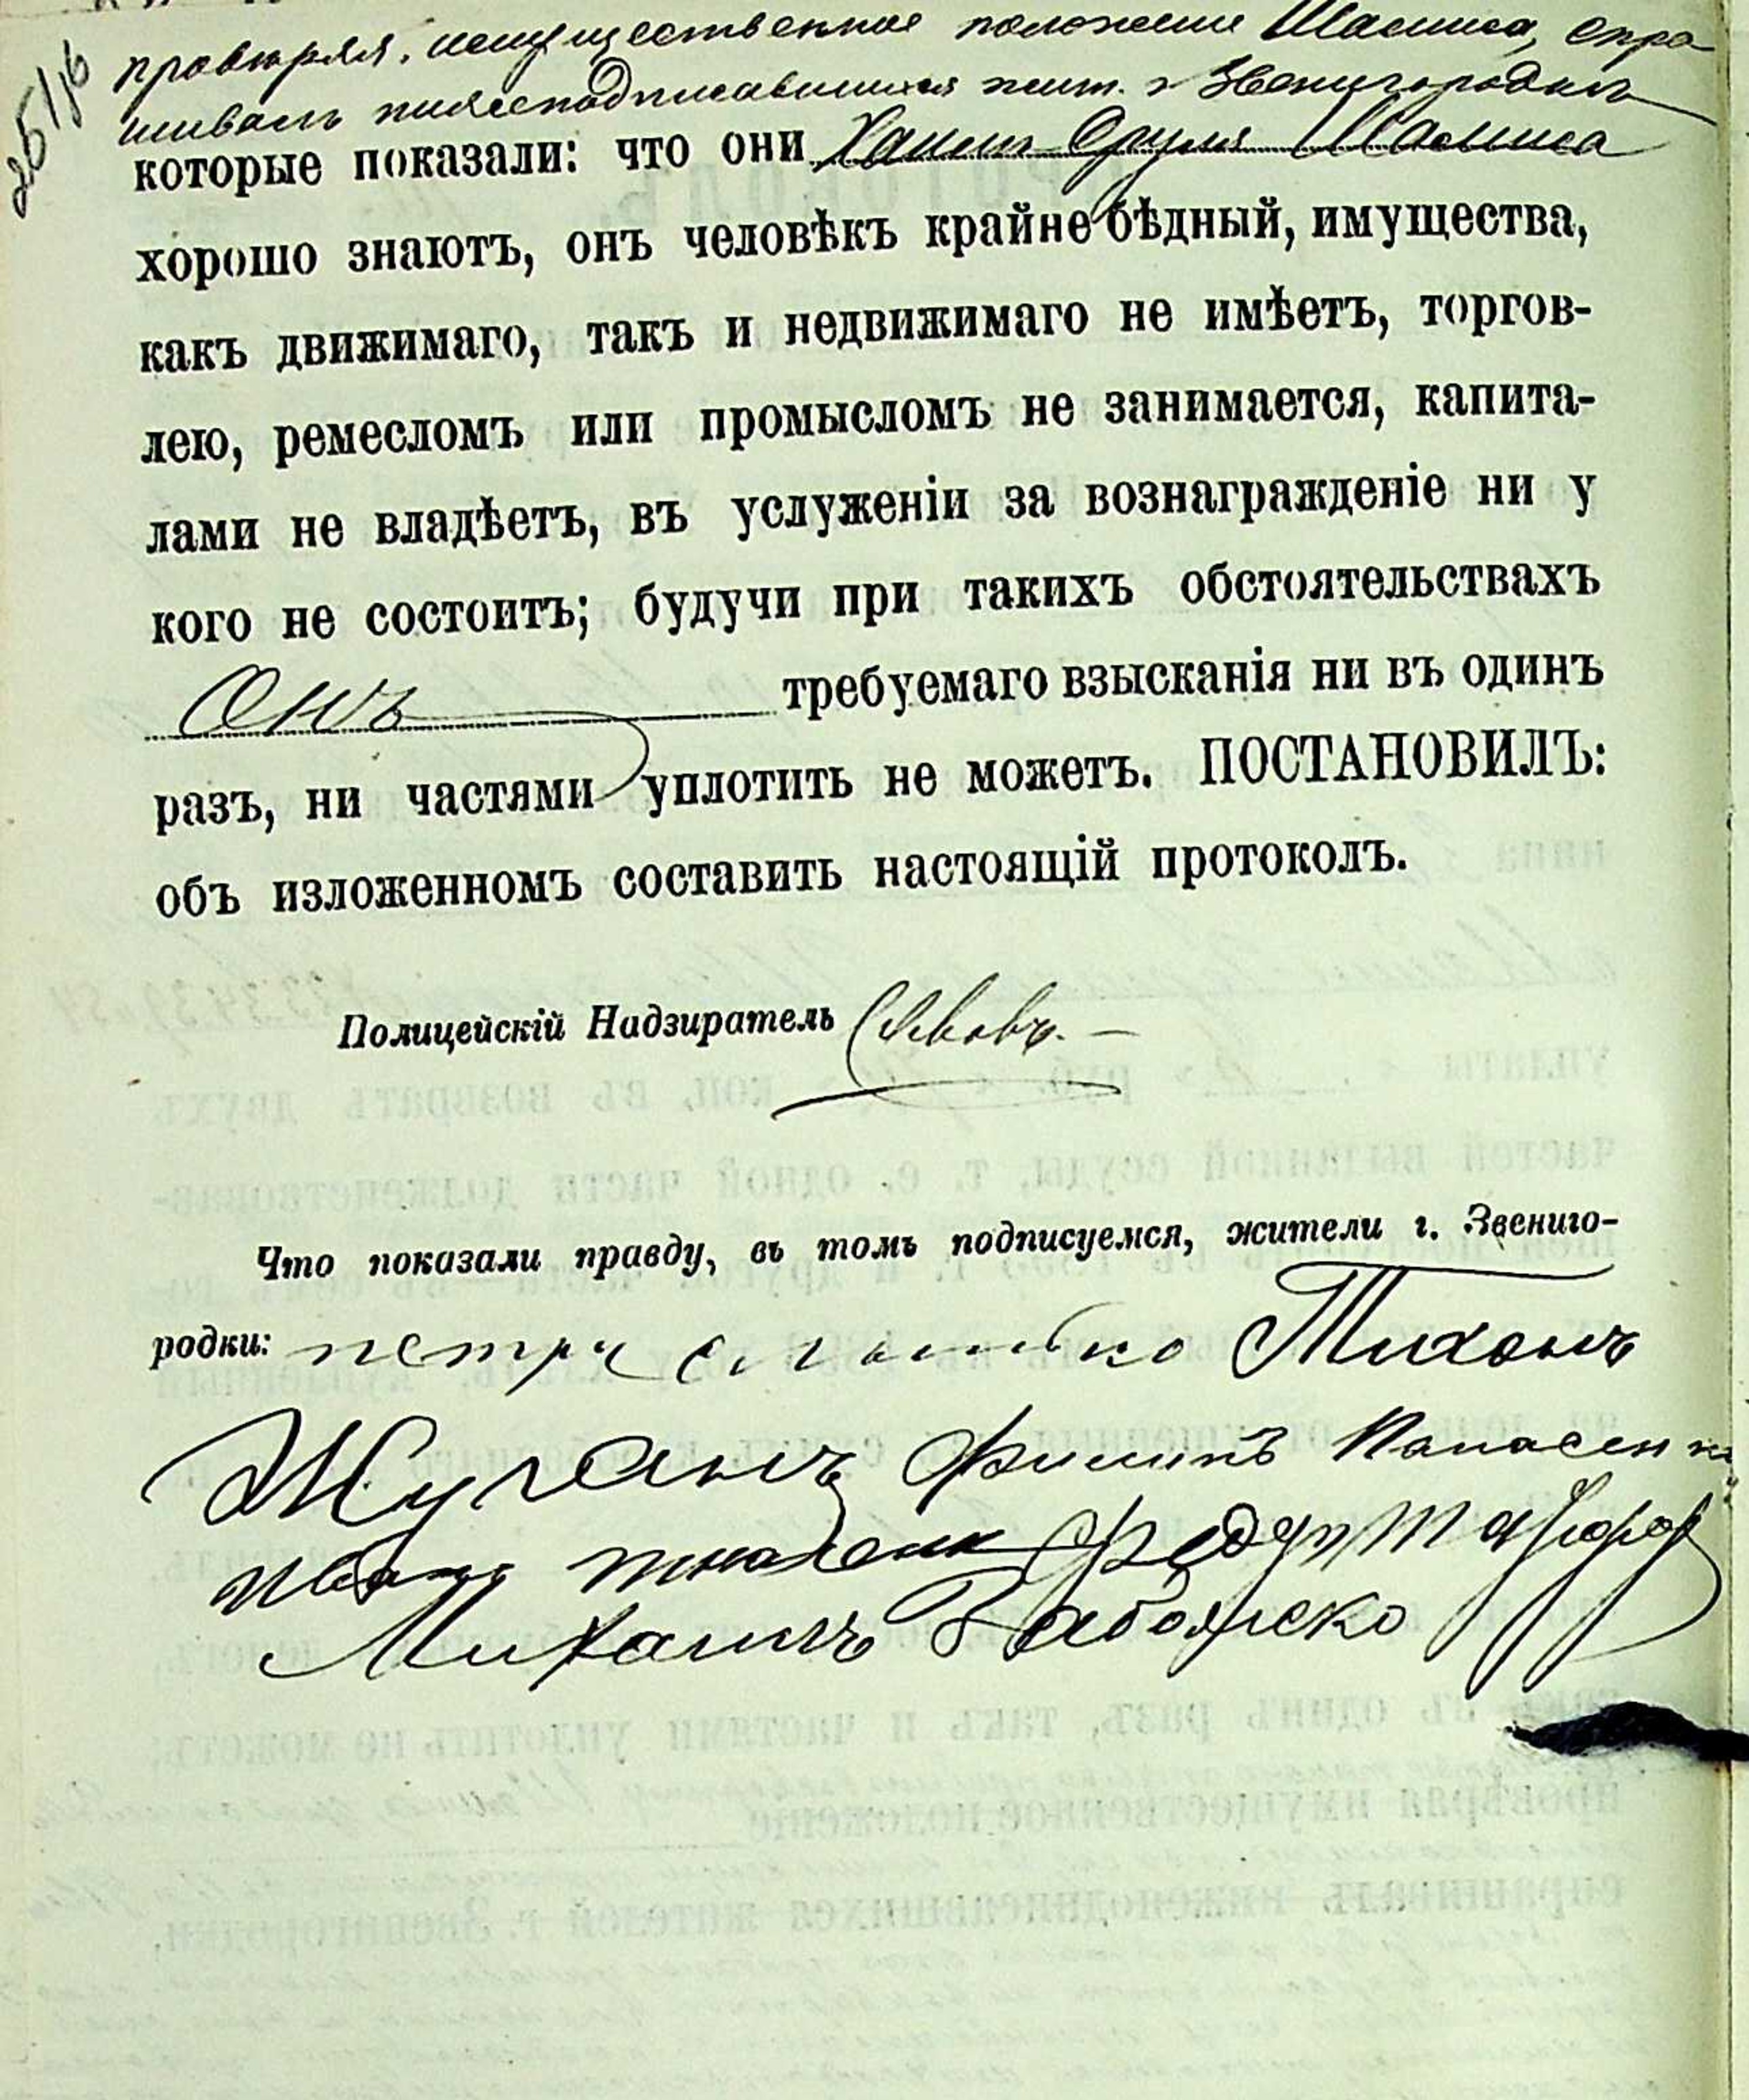 251/16
провѣряя имущественное положеніе Шамиса, спра-
шивалъ нижеподписавшихся жит. г. Звенигородки
которые показали: что они Хаимъ Сруля Шамиса
хорошо знаютъ, онъ человѣкъ крайне бѣдный, имущества,
какъ движимаго, такъ и недвижимаго не имѣетъ, торгов-
лею, ремесломъ или промысломъ не занимается, капита-
лами не владѣетъ, въ услуженіи за вознагражденіе ни у
кого не состоитъ; будучи при такихъ обстоятельствахъ
Онъ требуемаго взысканія ни въ одинъ
разъ, ни частями уплотить не можетъ. ПОСТАНОВИЛЪ:
объ изложенномъ составить настоящій протоколъ.
Полицейскій Надзиратель
Что показали правду, въ томъ подписуемся, жители г. Звениго-
родки: петръ Тихонъ
Жуганъ Филипъ Панасенко
иванъ Федур
Михаилъ